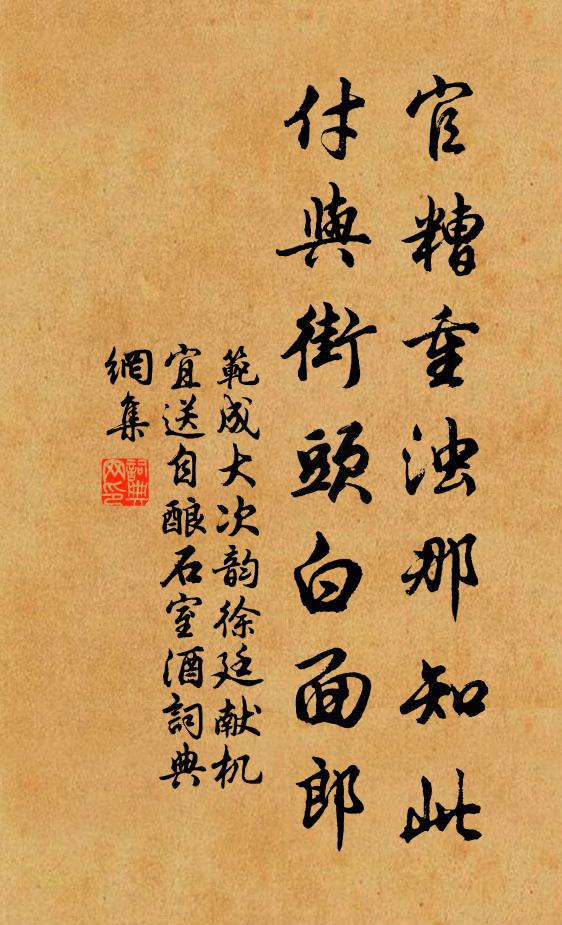 官糟重浊那知此
付與街頭白面郎
範成大次韵徐廷献机
宜送自酿石室酒詞典
網集
詞典
网印